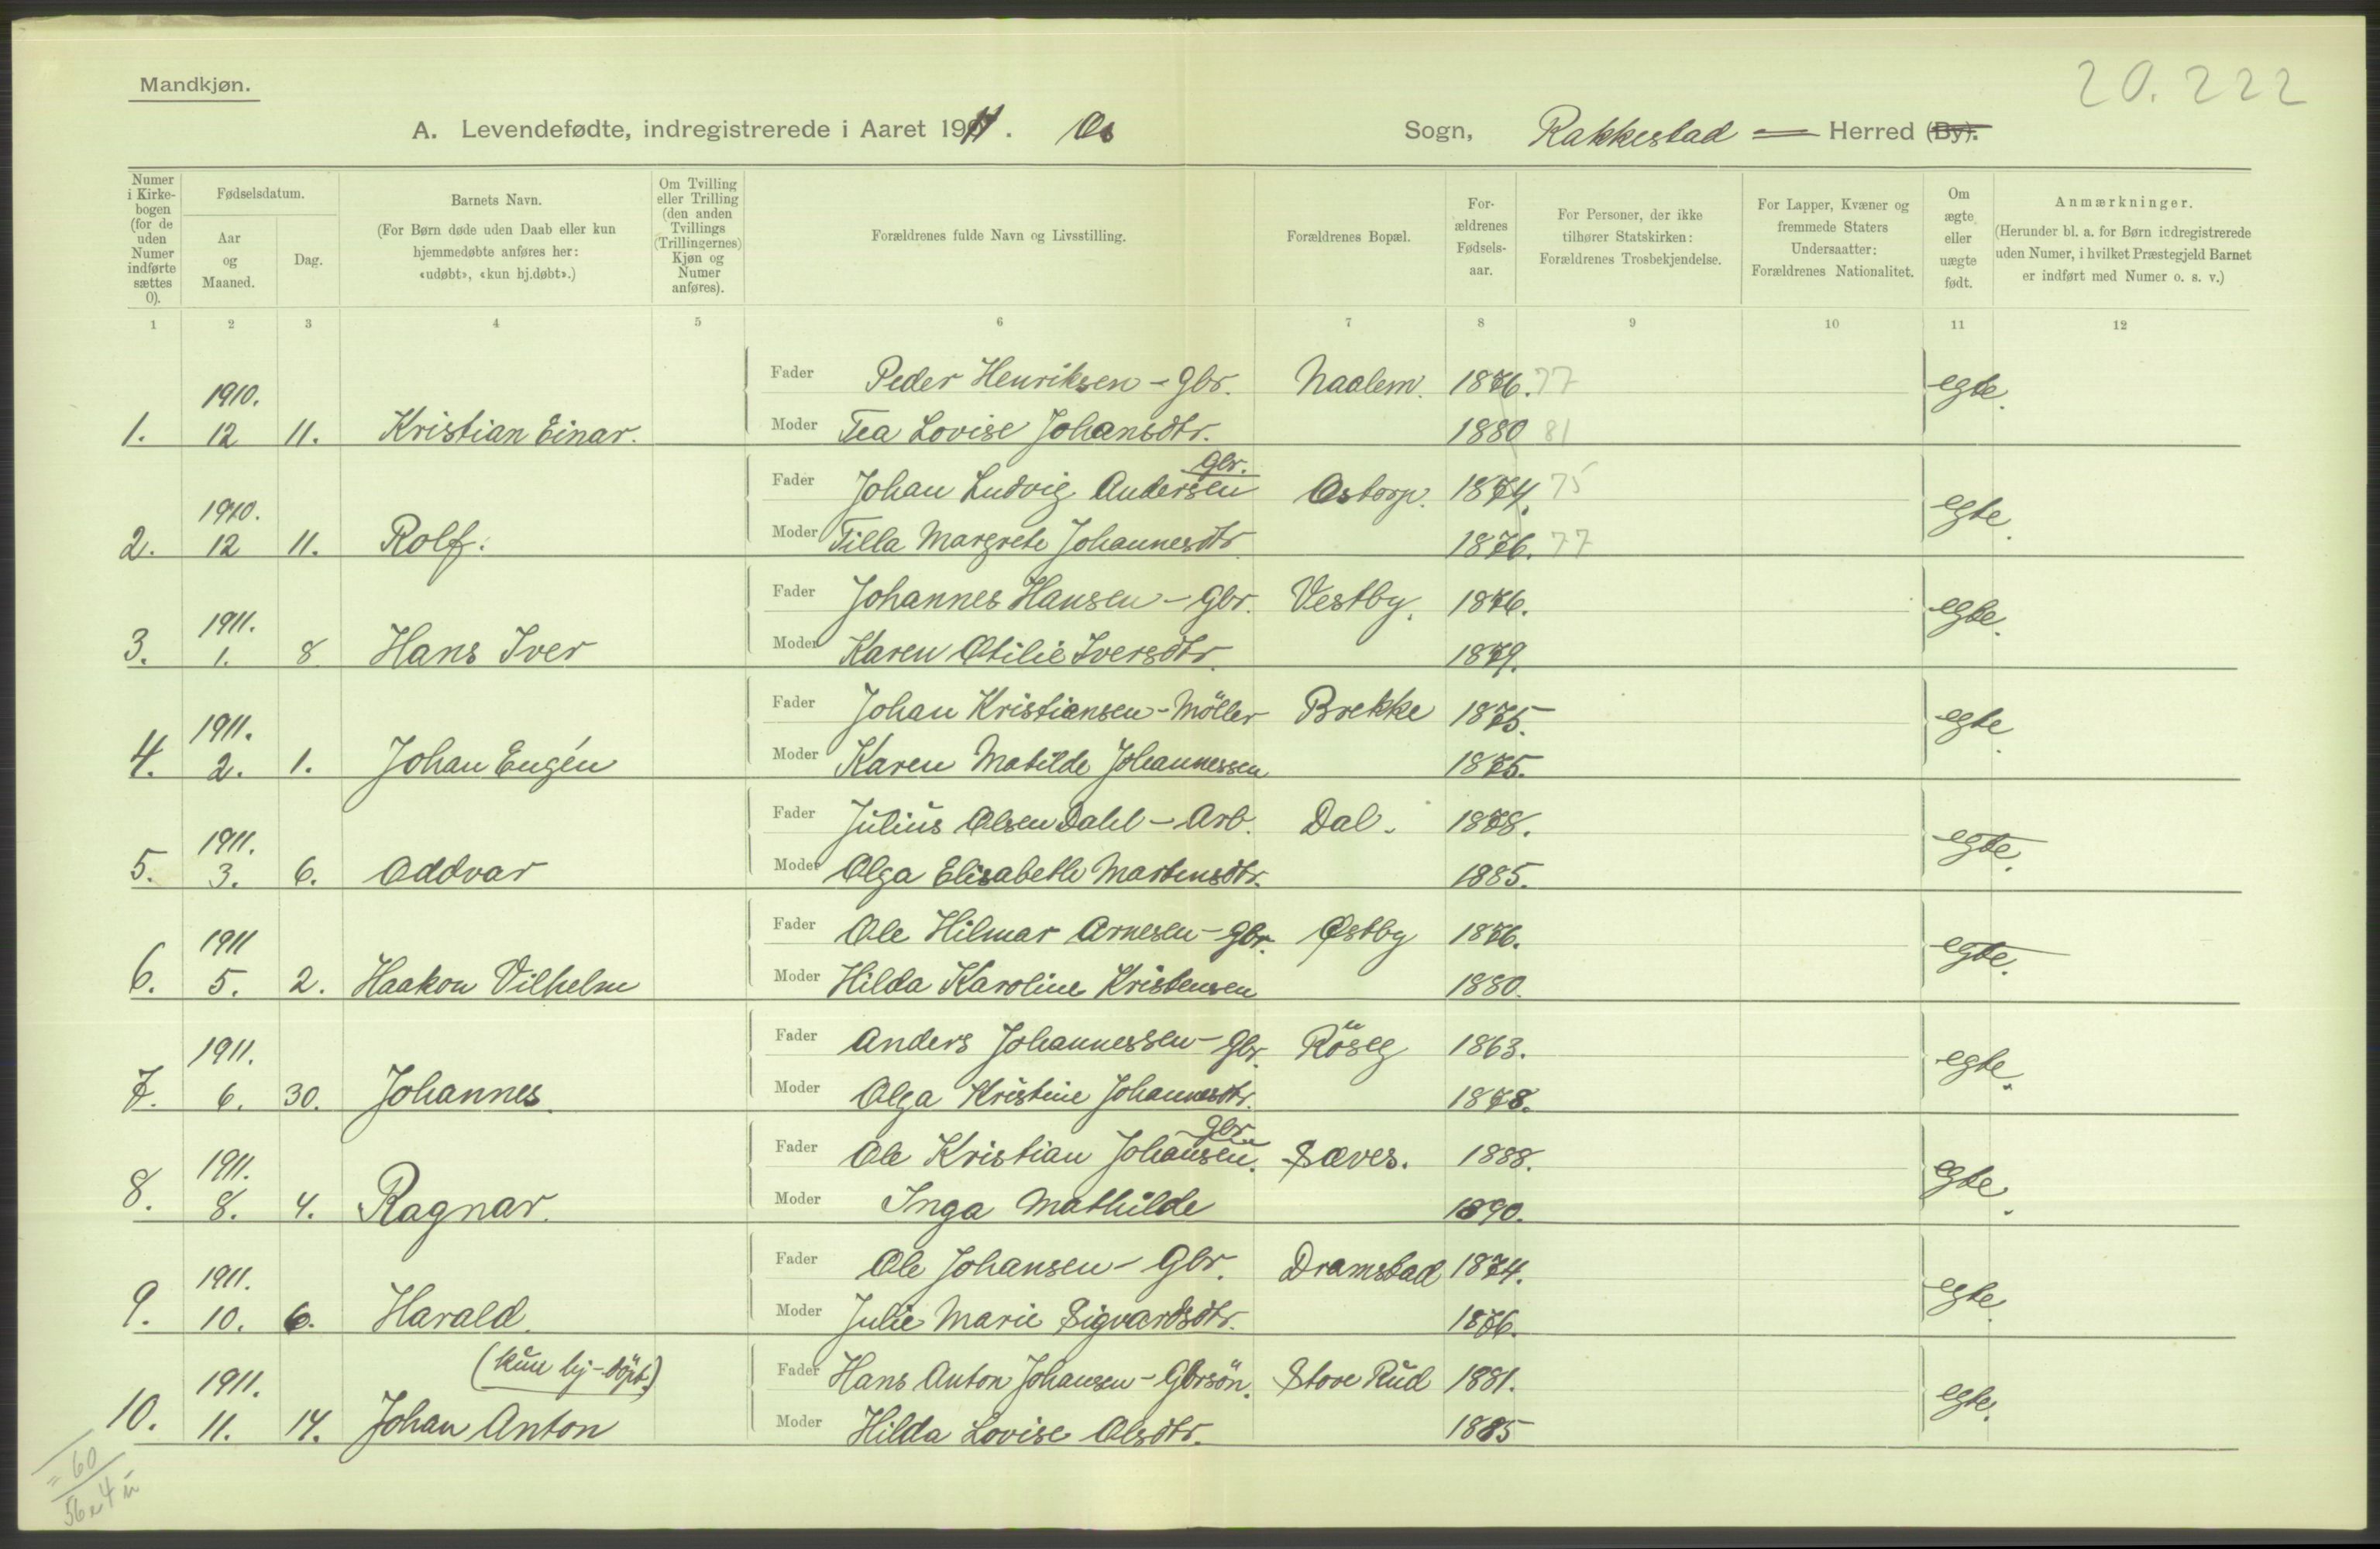 Mandkjøn.
20.222
A. Levendefødte, indregistrerede i Aaret 1911. Os Sogn, Rakkestad = Herred (By).
Numer i Kirke-bogen (for de uden Numer indførte sættes 0).
Fødselsdatum.
Aar og Maaned.
Dag.
Barnets Navn.
(For Børn døde uden Daab eller kun hjemmedøbte anføres her: «udøbt», «kun hj.døbt».)
Om Tvilling eller Trilling (den anden Tvillings (Trillingernes) Kjøn og Numer anføres).
Forældrenes fulde Navn og Livsstilling.
Forældrenes Bopæl.
For-ældrenes Fødsels-aar.
For Personer, der ikke tilhører Statskirken: Forældrenes Trosbekjendelse.
For Lapper, Kvæner og fremmede Staters Undersaatter: Forældrenes Nationalitet.
Om ægte eller uægte født.
Anmærkninger.
(Herunder bl. a. for Børn indregistrerede uden Numer, i hvilket Præstegjeld Barnet er indført med Numer o. s. v.)
1 2 3 4 5 6 7 8 9 10 11 12
Fader Peder Henriksen - Gbr. Naalem. 1876. 77 egte.
1910.
1. 12 11. Kristian Einar. Moder Tea Lovise Johansdtr. 1880 81
Gbr.
Fader Johan Ludvig Andersen Ostorp. 1874. 75 egte.
1910.
2. 12 11. Rolf. Moder Tilla Margrete Johannesdtr 1876. 77
Fader Johannes Hansen - Gbr. Vestby. 1876. egte.
1911.
3. 1. 8 Hans Iver Moder Karen Otilie Iversdtr. 1879.
Fader Johan Kristiansen - Möller Brekke 1875. egte.
1911.
4. 2. 1. Johan Eugén Moder Karen Matilde Johannessen 1875.
Fader Julius Olsen Dahl - Arb. Dal. 1878. egte.
1911.
5. 3. 6. Oddvar Moder Olga Elisabeth Martensdtr. 1885.
Fader Ole Hilmar Arnesen - Gbr. Østby 1876. egte.
1911
6. 5. 2. Haakon Vilhelm Moder Hilda Karoline Kristensen 1880.
Fader Anders Johannessen - Gbr. Röseg 1863. egte.
1911.
7. 6. 30. Johannes. Moder Olga Kristine Johannesdtr. 1878.
Gbr.
Fader Ole Kristian Johansen. Sæves. 1888. egte.
1911.
8. 8. 4. Ragnar. Moder Inga Mathilde 1890.
Fader Ole Johansen - Gbr. Dramstad 1874. egte.
1911.
9. 10. 6. Harald. Moder Julie Marie Sigvardsdtr. 1876.
(kun hj-döpt.)
Fader Hans Anton Johansen - Gbrsön. Store Rud 1881. egte.
1911.
10. 11. 14. Johan Anton Moder Hilda Lovise Olsdtr. 1885
= 60